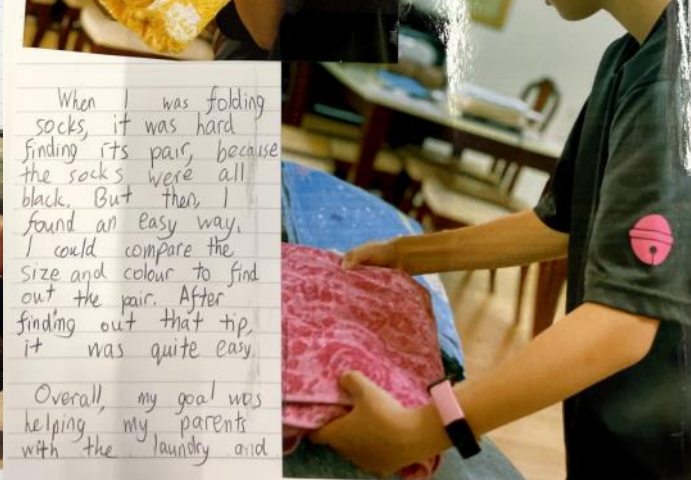 When I was folding
socks, it was hard
finding its pair, because
the socks were all
black. But then, I
found an easy way.
I could compare the
size and colour to find
out the pair. After
finding out that tip,
it was quite easy.
Overall, my goal was
helping my parents
with the laundry and